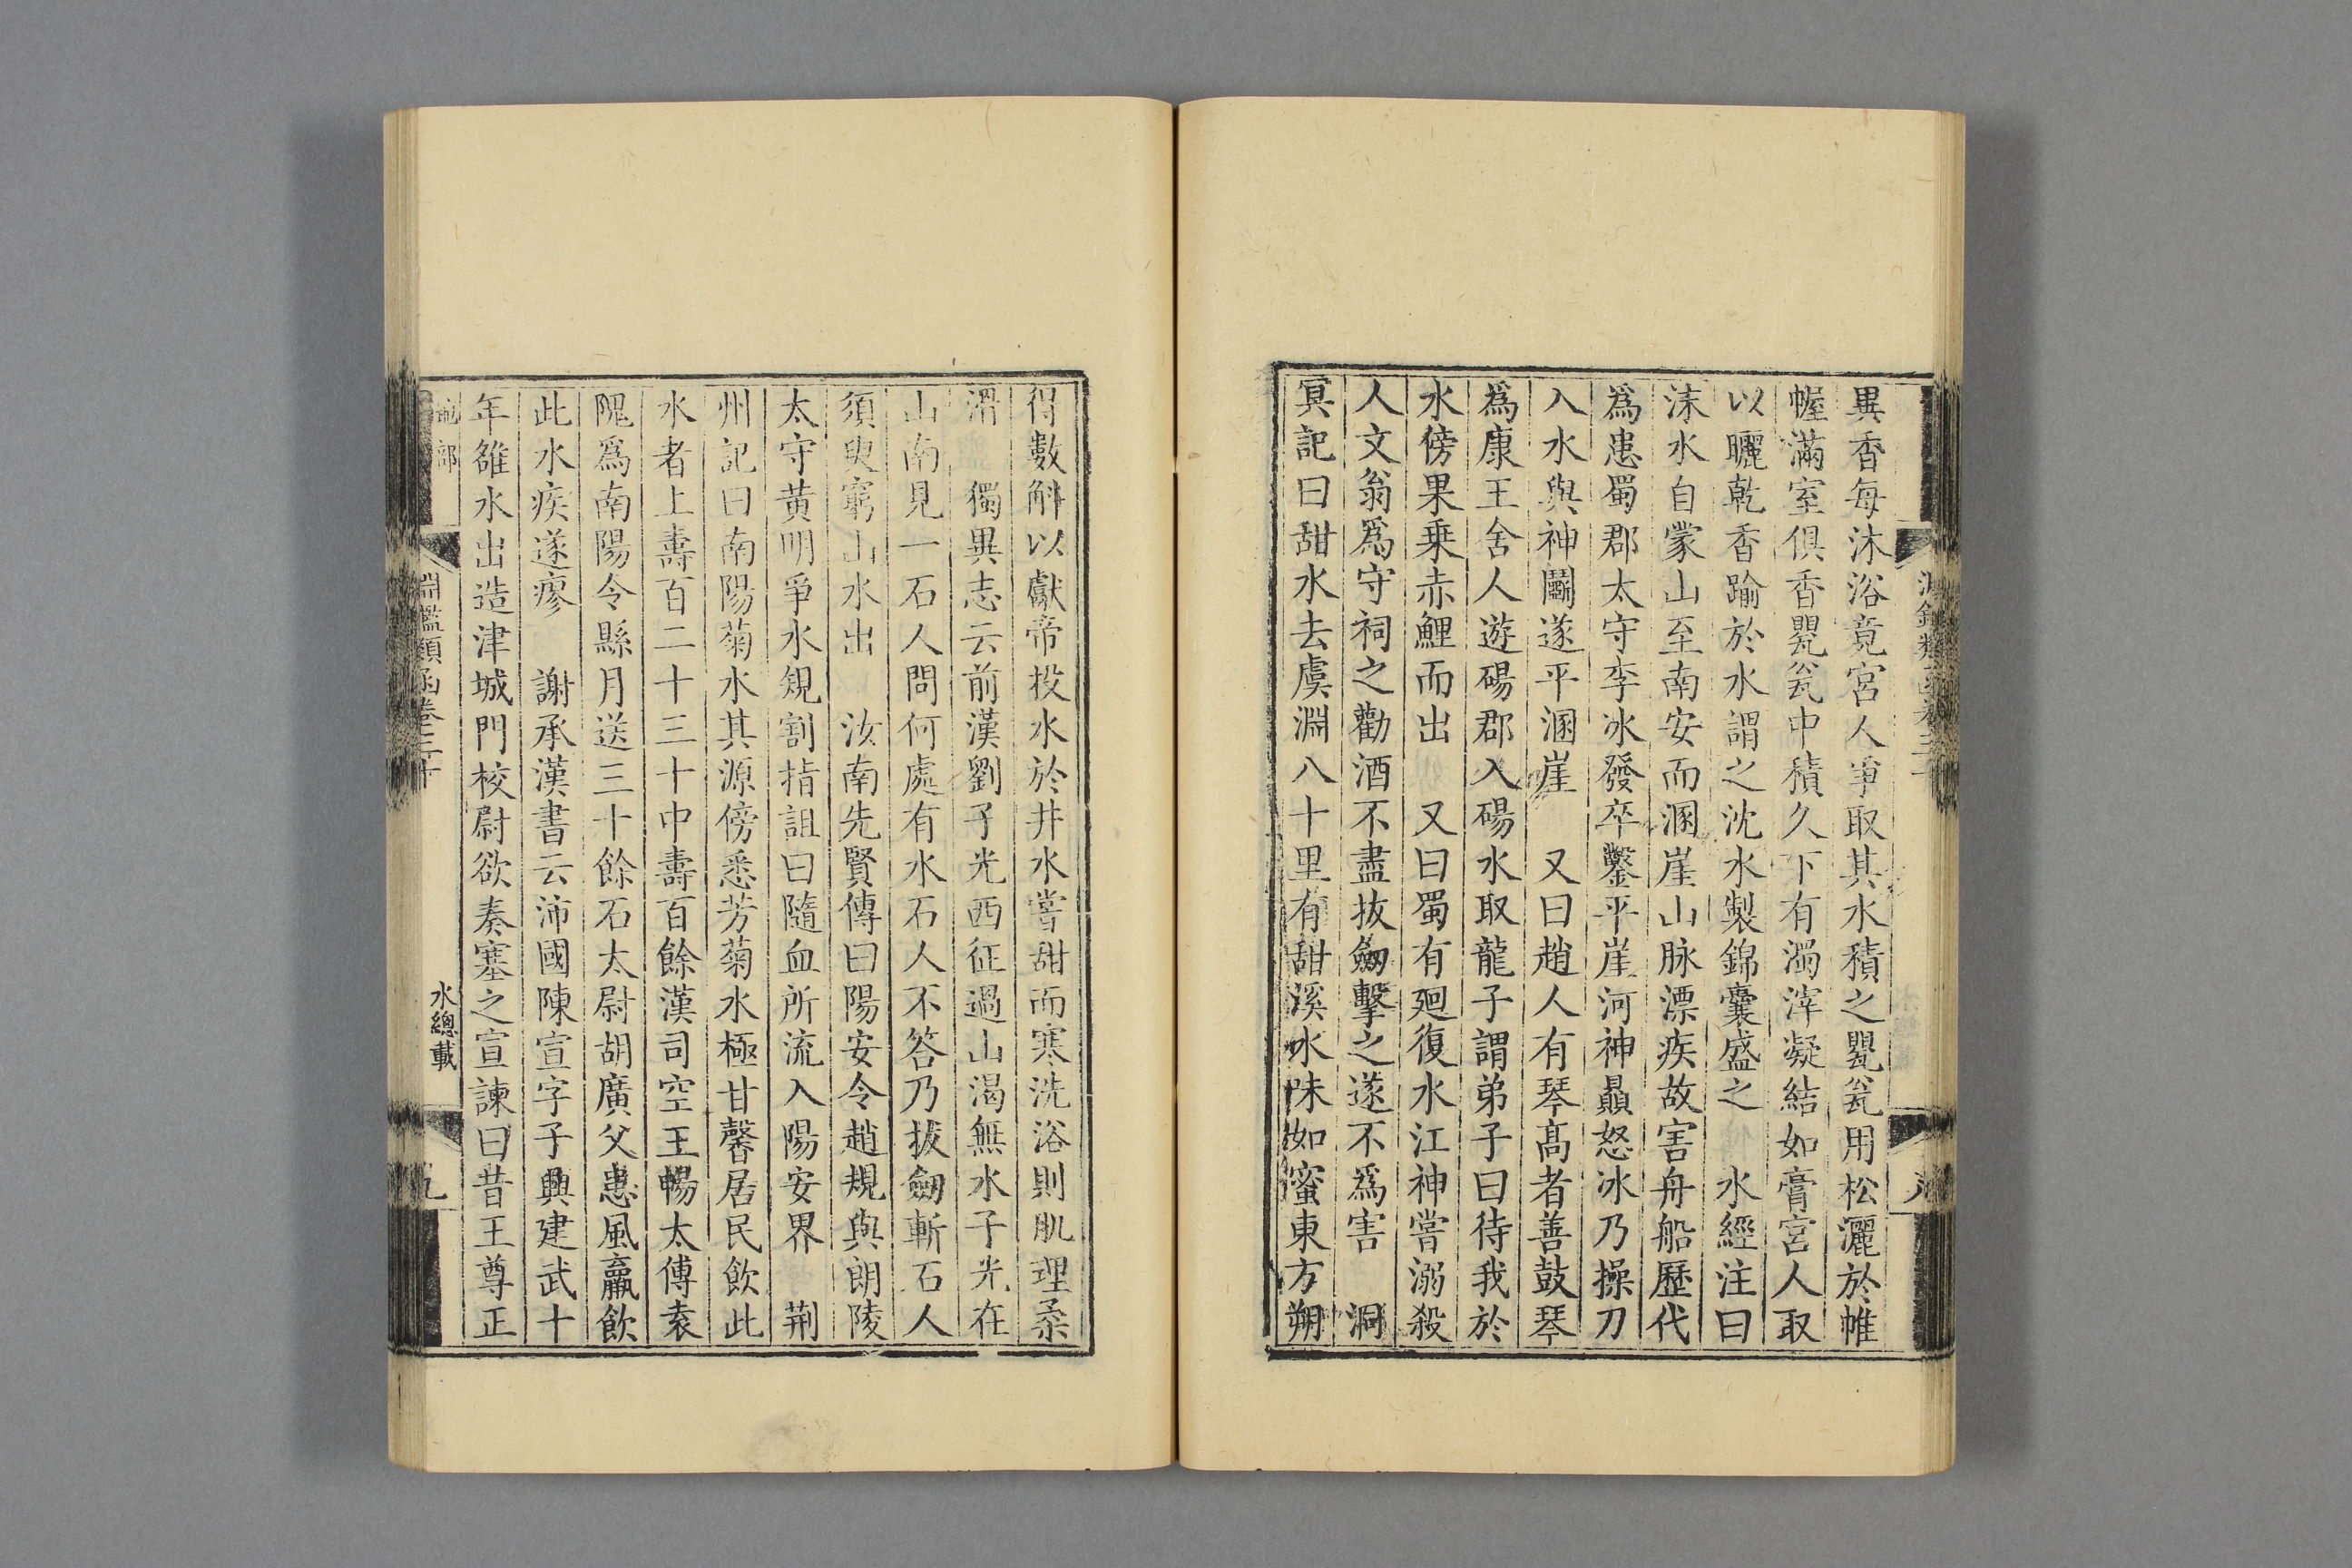 異香每沐浴竟宮人爭取其水積之甖瓮用松灑於帷
幄滿室俱香甖瓮中積久下有濁滓凝結如膏宮人取
以曬乾香踰於水謂之沈水製錦囊盛之　水經注曰
沫水自蒙山至南安而溷崖山脉漂疾故害舟船歷代
爲患蜀郡太守李冰發卒鑿平崖河神贔怒冰乃操刀
入水與神鬭遂平溷崖　又曰趙人有琴高者善鼓琴
爲康王舍人遊碭郡入碭水取龍子謂弟子曰待我於
水傍果乗赤鯉而出　又曰蜀有廻復水江神嘗溺殺
人文翁爲守祠之勸酒不盡拔劒擊之遂不爲害　洞
冥記曰甜水去虞淵八十里有甜溪水味如蜜東方朔
得數斛以獻帝投水於井水嘗甜而寒洗浴則肌理柔
滑　獨異志云前漢劉子光西征過山渴無水子光在
山南見一石人問何處有水石人不答乃拔劒斬石人
須臾窮山水出　汝南先賢傳曰陽安令趙規與朗陵
太守黃明爭水規割指詛曰隨血所流入陽安界　荆
州記曰南陽菊水其源傍悉芳菊水極甘馨居民飲此
水者上壽百二十三十中壽百餘漢司空王暢太傅袁
隗爲南陽令縣月送三十餘石太尉胡廣父患風羸飲
此水疾遂瘳　謝承漢書云沛國陳宣字子興建武十
年雒水出造津城門校尉欲奏塞之宣諫曰昔王尊正
地部
淵鑑類函卷三十
水總載
九